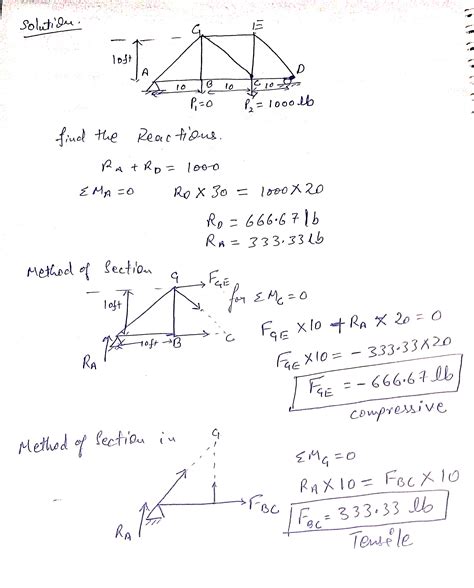 Solution.
G E
10ft
A D
B C
10 10 10
P₁=0 P₂ = 1000 lb
find the Reactions.
RA + RD = 1000
ΣMA = 0 RD × 30 = 1000 × 20
RD = 666.67 lb
RA = 333.33 lb
Method of Section
G FGE
for ΣMC = 0
10ft
FGE × 10 + RA × 20 = 0
10ft B C
RA
FGE × 10 = - 333.33 × 20
FGE = - 666.67 lb
compressive
Method of Section in
G
ΣMG = 0
RA × 10 = FBC × 10
FBC
RA
FBC = 333.33 lb
Tensile